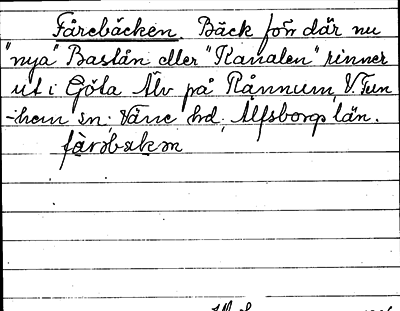 Fårebäcken. Bäck förr där nu
"nya" Baslån eller "Kanalen" rinner
ut i Göta Älv på Rånnum, V. Tun
-hem sn; Väne hd, Älfsborgs län.